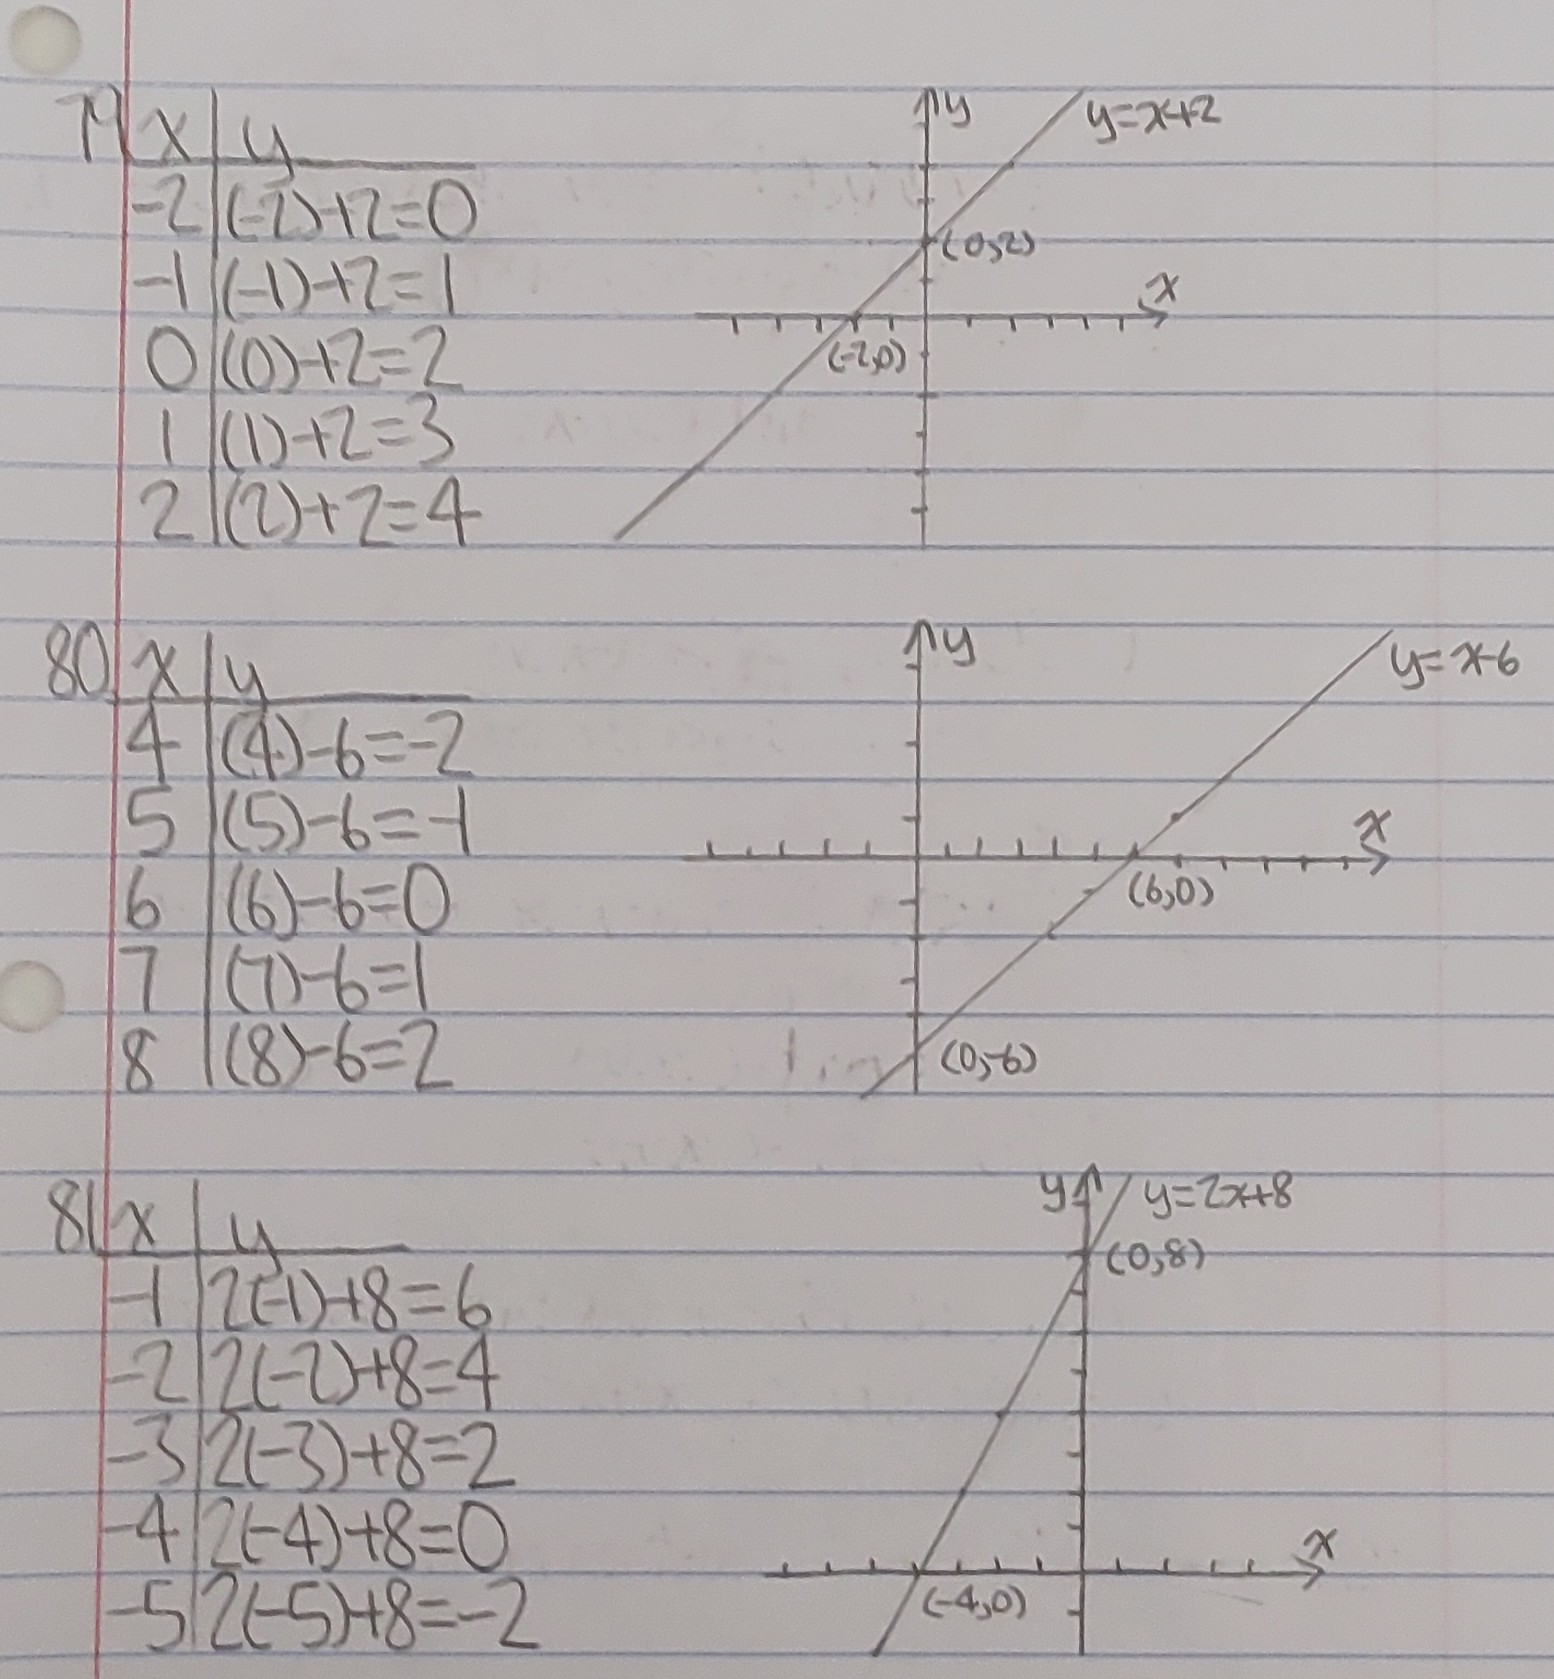 79 x y
-2 (-2)+2=0
-1 (-1)+2=1
0 (0)+2=2
1 (1)+2=3
2 (2)+2=4
y
y=x+2
(0,2)
x
(-2,0)
80 x y
4 (4)-6=-2
5 (5)-6=-1
6 (6)-6=0
7 (7)-6=1
8 (8)-6=2
y
y=x-6
x
(6,0)
(0,-6)
81 x y
-1 2(-1)+8=6
-2 2(-2)+8=4
-3 2(-3)+8=2
-4 2(-4)+8=0
-5 2(-5)+8=-2
y y=2x+8
(0,8)
x
(-4,0)